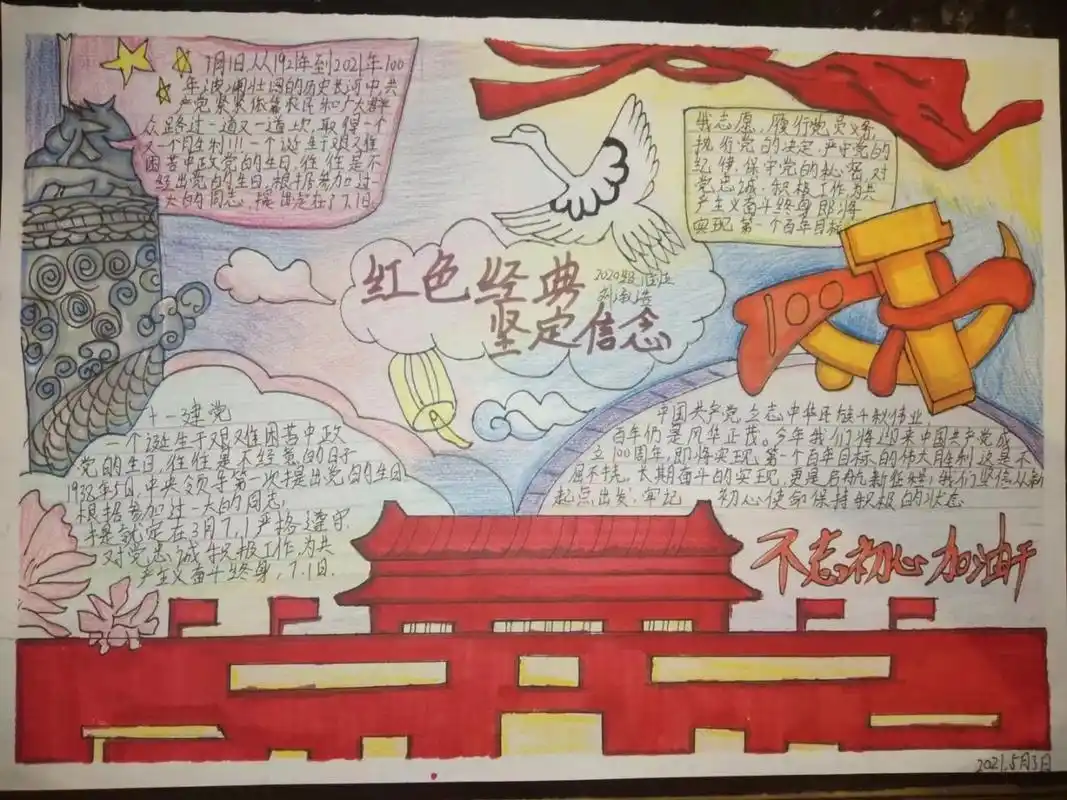 7月1日从1921年到2021年100
年波澜壮阔的历史长河中共
产党紧紧依靠人民和广大群
众跨过一道又一道坎,取得一个
又一个胜利!!!一个诞生于艰难
困苦中政党的生日,往往是不
经出党的的生日,根据参加过
一大的同志,提出定在了7.1日.
我志愿,履行党员义务
执行党的决定,严守党的
纪律,保守党的秘密,对
党忠诚,积极工作,为共
产主义奋斗终身,即将
实现第一个百年目标
红色经典
坚定信念
2020级
100
十一建党
一个诞生于艰难困苦中政
党的生日,往往是不经意的日子
1938年5日,中央领导第一次提出党的生日
根据参加过一大的同志,
提就定在3月7.1严格遵守
对党忠诚积极工作为共
产主义奋斗终身,7.1日.
中国共产党立志中华民族千秋伟业,
百年仍是风华正茂。今年我们将迎来中国共产党成
立100周年,即将实现第一个百年目标的伟大胜利这是不
屈不挠,长期奋斗的实现,更是启航新征程,我们坚信从新
起点出发,牢记 初心使命保持积极的状态
不忘初心加油干
2021.5月3日